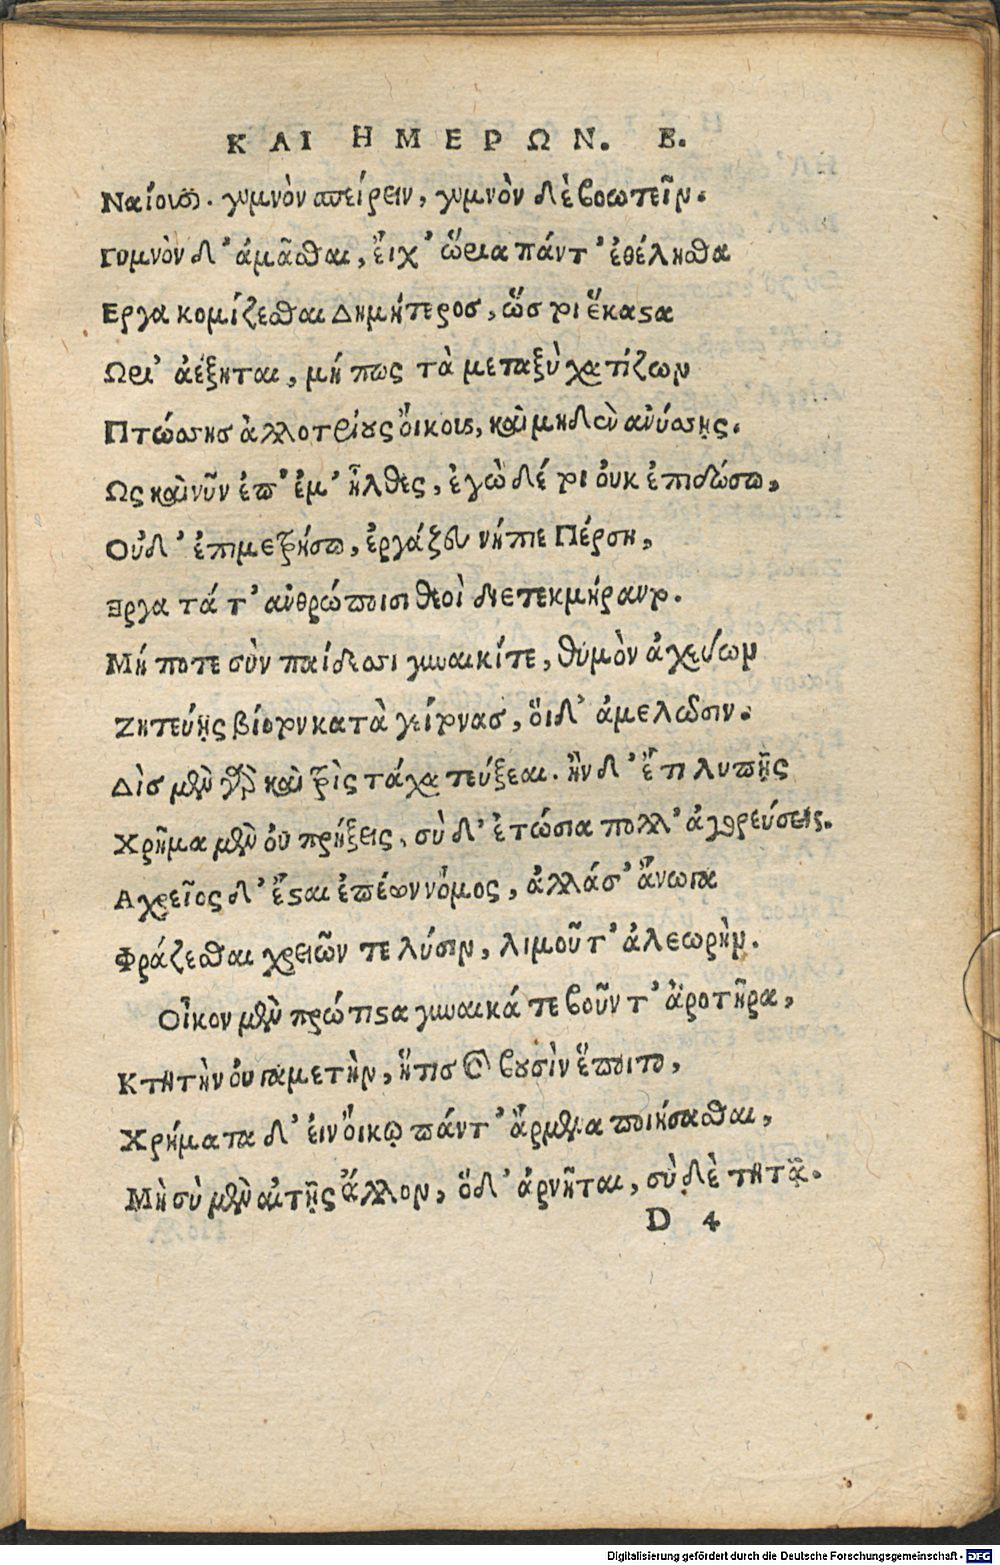 ΚΑΙ ΗΜΕΡΩΝ. Β.
Ναίουσι. γυμνὸν σπείρειν, γυμνὸν δὲ βοωτεῖν.
Γυμνὸν δ' ἀμᾶσθαι, ἔιχ' ὥρια πάντ' ἐθέλησθα
Εργα κομίζεσθαι Δημήτερος, ὥς τοι ἕκαστα
Ωρι' ἀέξηται, μή πως τὰ μεταξὺ χατίζων
Πτώσσῃς ἀλλοτρίους ὄικους, καὶ μηδὲν ἀνύσσῃς.
Ως καὶ νῦν ἐπ' ἐμ' ἦλθες, ἐγὼ δέ τοι ὀυκ ἐπιδώσω,
Ουδ' ἐπιμετρήσω, ἐργάζευ νήπιε Πέρση,
Εργα τά τ' ἀνθρώποισι θεοὶ διετεκμήραντο.
Μή ποτε σὺν παίδεσσι γυναικίτε, θυμὸν ἀχεύων
Ζητεύῃς βίοτον κατὰ γείτονας, ὅιδ' ἀμελῶσιν.
Δὶς μὲν γὰρ καὶ τρὶς τάχα τεύξεαι. ἢν δ' ἔτι λυπῇς
Χρῆμα μὲν ὀυ πρήξεις, σὺ δ' ἐτώσια πολλ' ἀγορεύσεις.
Αχρεῖος δ' ἔσται ἐπέων νόμος, ἀλλάσ' ἄνωγα
Φράζεσθαι χρειῶν τε λύσιν, λιμοῦ τ' ἀλεωρὴν.
Οἶκον μὲν πρώτιστα γυναικά τε βοῦν τ' ἀροτῆρα,
Κτητὴν ὀυ γαμετὴν, ἥτις καὶ βουσὶν ἕποιτο,
Χρήματα δ' ἐιν ὄικῳ πάντ' ἄρμενα ποιήσασθαι,
Μὴ σὺ μὲν αἰτῇς ἄλλον, ὅδ' ἀρνῆται, σὺ δὲ τητᾷ.
D 4
Digitalisierung gefördert durch die Deutsche Forschungsgemeinschaft - DFG